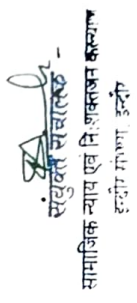 संयुक्त संचालक -
सामाजिक न्याय एवं निःशक्तजन कल्याण
इन्दौर संभाग, इन्दौर